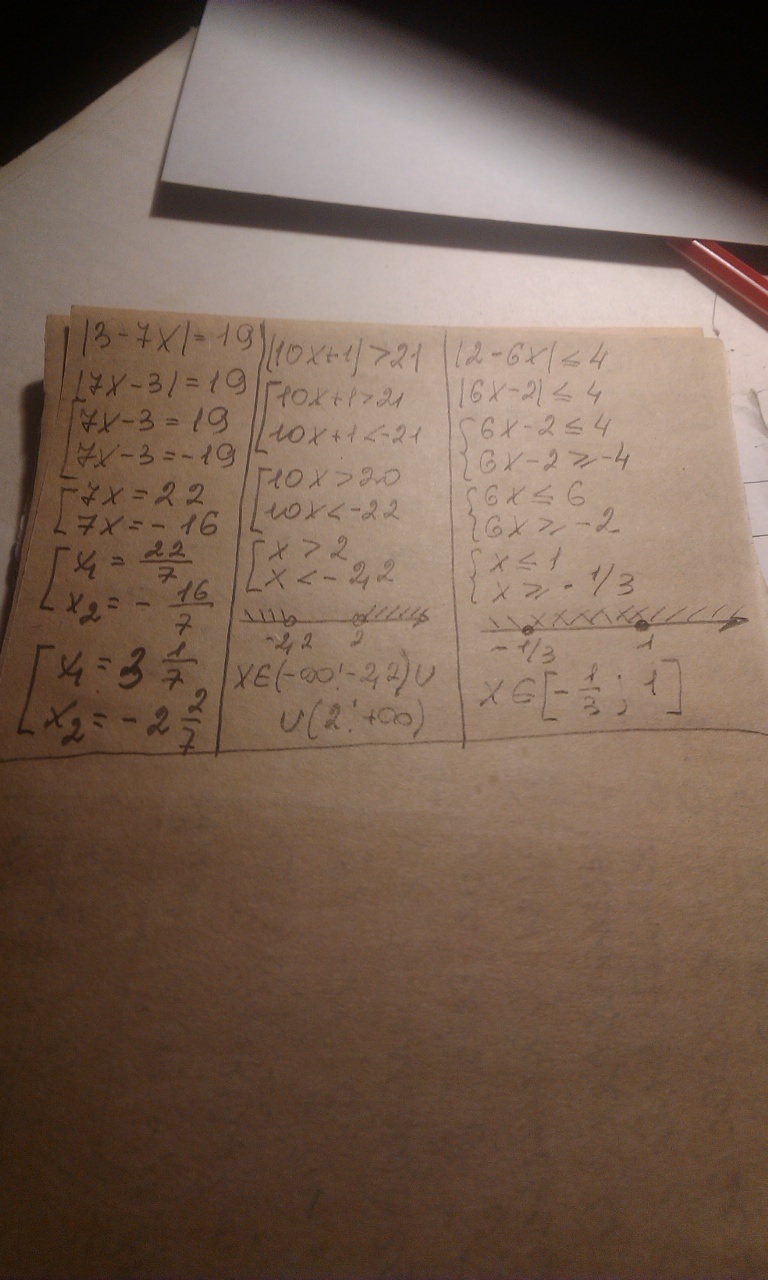 |3-7x|=19
|7x-3|=19
[7x-3=19
7x-3=-19
[7x=22
7x=-16
[x₁=22/7
x₂=-16/7
[x₁=3 1/7
x₂=-2 2/7
|10x+1|>21
[10x+1>21
10x+1<-21
[10x>20
10x<-22
[x>2
x<-2,2
-2,2 2
x∈(-∞;-2,2)∪
∪(2;+∞)
|2-6x|≤4
|6x-2|≤4
{6x-2≤4
6x-2≥-4
{6x≤6
6x≥-2
{x≤1
x≥-1/3
-1/3 1
x∈[-1/3;1]